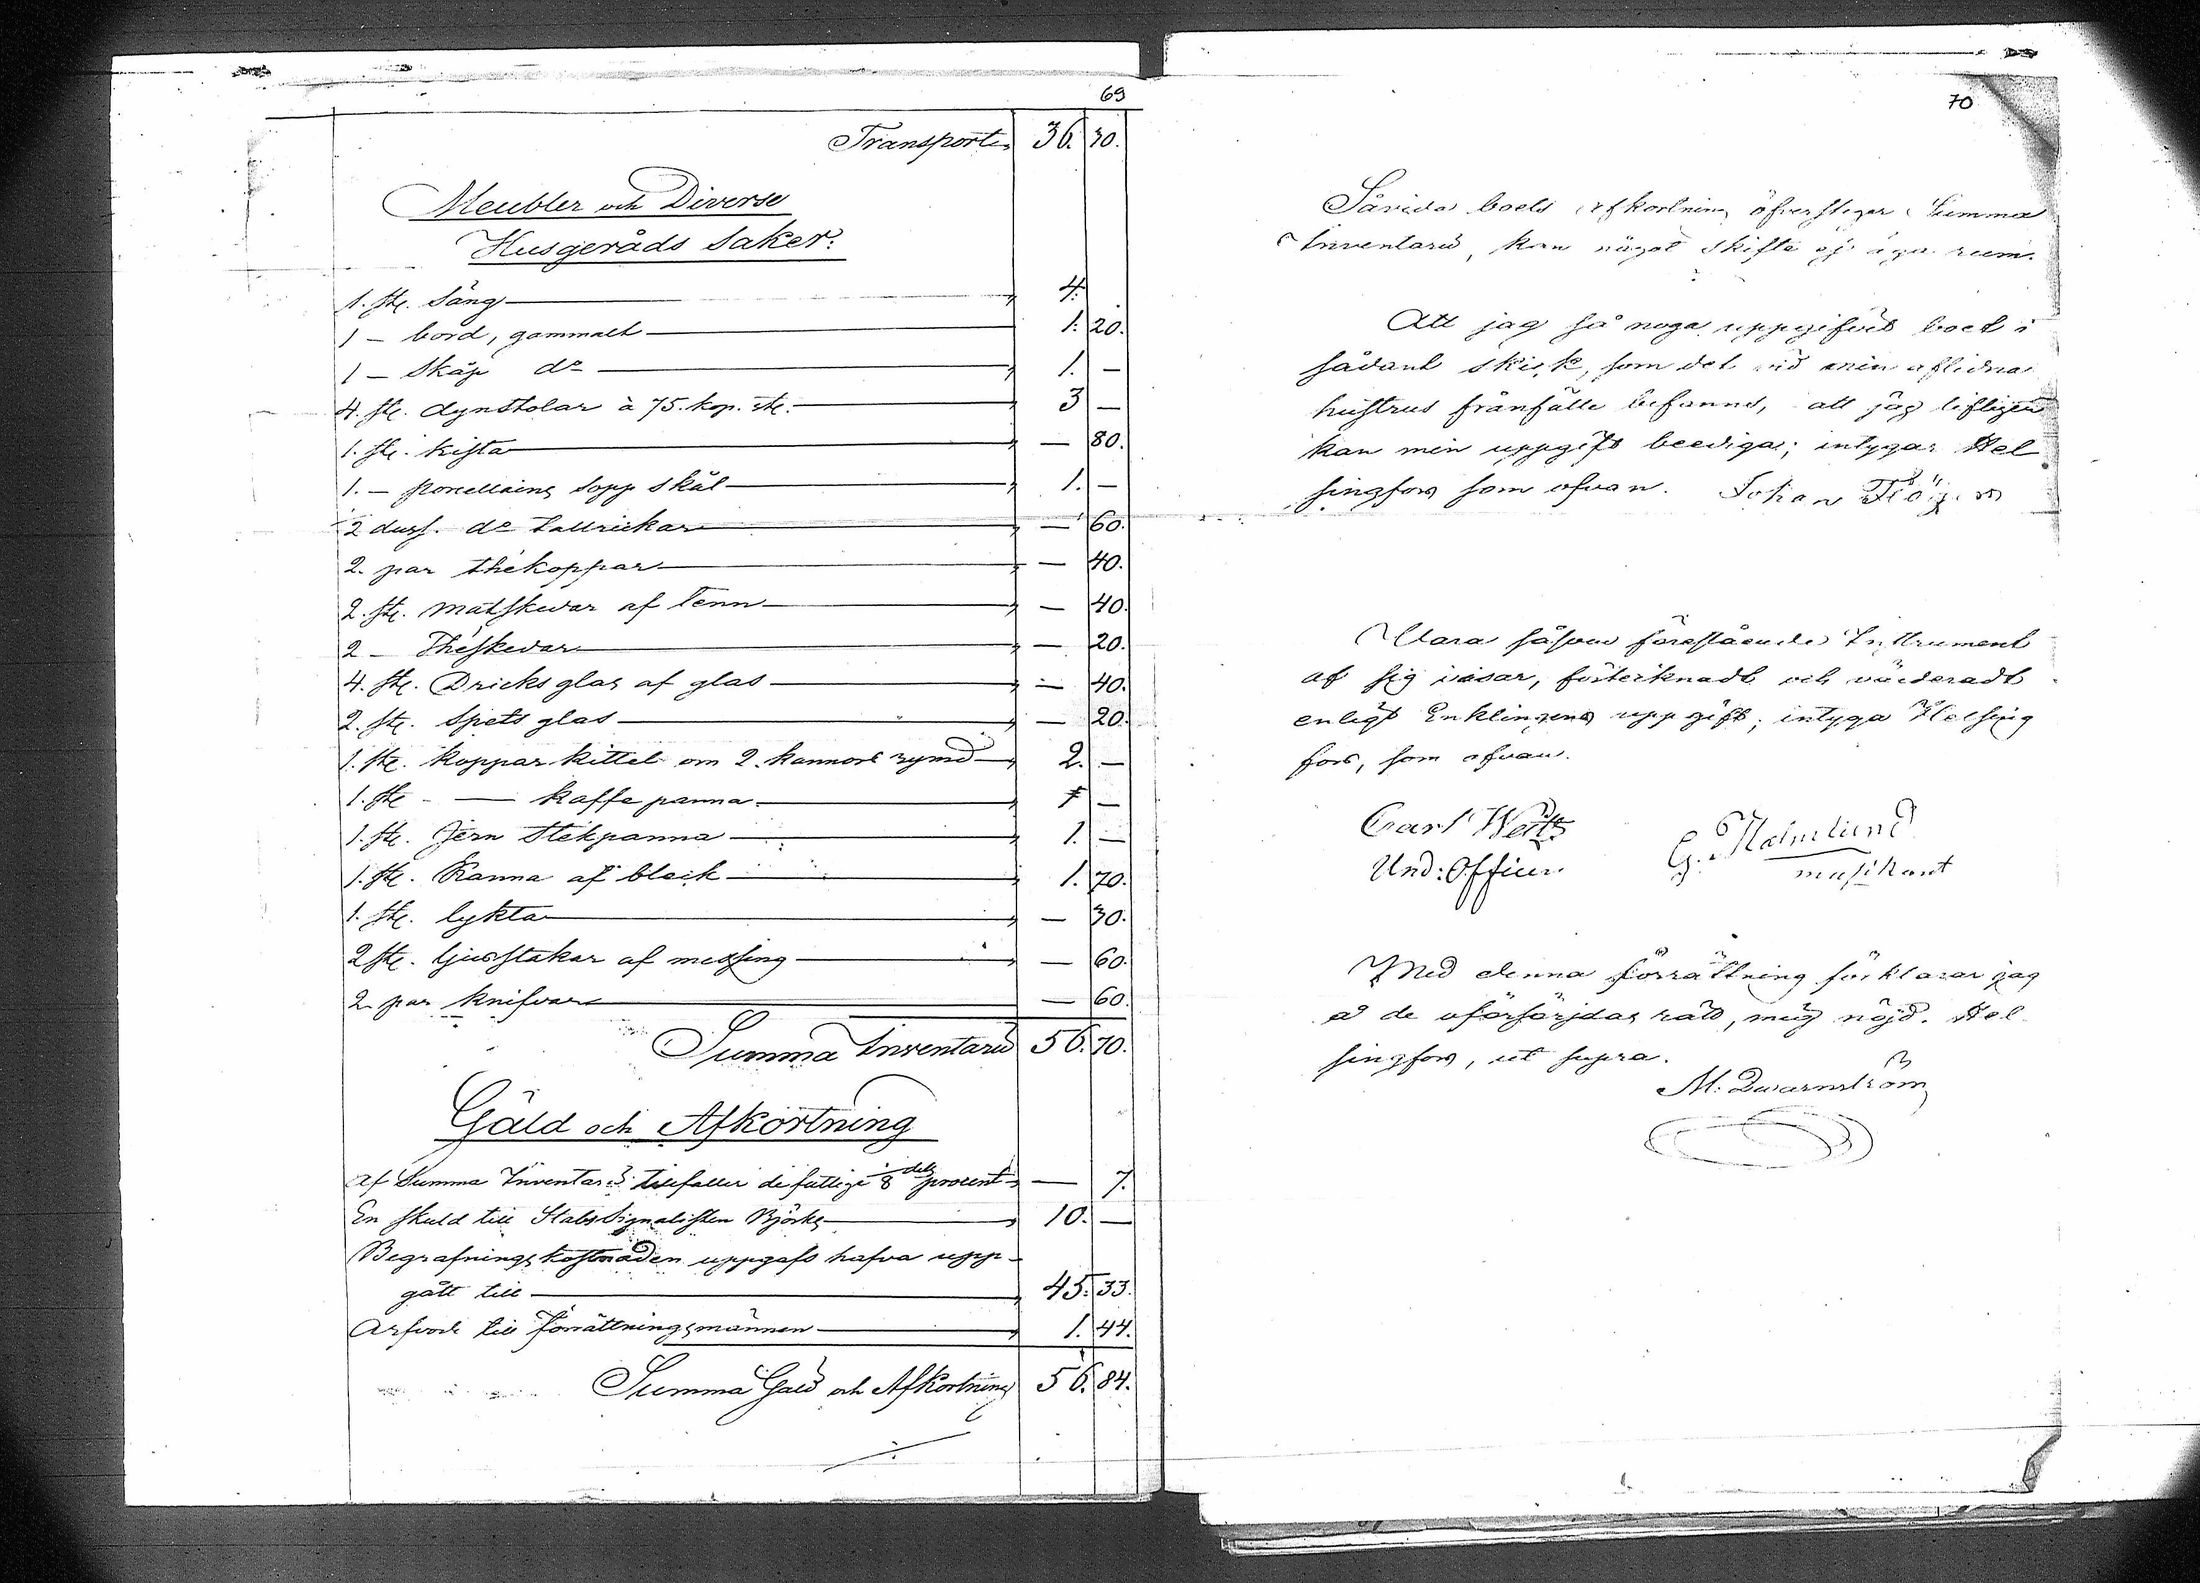 69
Transport 36. 30.
Meubler och Diverse
Husgeråds Saker:
1. st. Säng 4.
1 — bord, gammalt 1. 20.
1 — Skåp do 1. —
4. st. dynstolar à 75. kop. st. 3 —
1. st. kista — 80.
1. — porcellains sopp skål 1. —
2 duss. do tallrickar — 60.
2. par thékoppar — 40.
2. st. matskedar af tenn — 40.
2 — Théskedar — 20.
4. st. Dricksglas af glas — 40.
2. st. Spets glas — 20.
1. st. koppar kittel om 2. kannors rymd 2. —
1. st. — kaffe panna —
1. st. Jern Stekpanna 1. —
1. st. Kanna af bleck 1. 70.
1. st. lykta — 30.
2 st. ljusstakar af messing — 60
2 par knifvar — 60
Summa Inventarii 56. 70.
Gäld och Afkortning
Af Summa Inventarii tillfaller de fattige 8 dels procent — 7.
En skuld till Stabs Signalisten Björk 10. —
Begrafningskostnaden uppgafs hafva upp-
gått till 45. 33.
Arfvode till förrättningsmännen 1. 44.
Summa Gäld och Afkortning 56. 84.
70
Såvida boets afkortning öfverstiger Summa
Inventarii, kan något Skifte ej äga rum.
Att jag så noga uppgifvit boet i
sådant skick, som det vid min aflidna
hustrus frånfälle befanns, att jag lifligen
kan min uppgift beediga; intygar Hel
singfors som ofvan. Johan
Vara såsom förestående Instrument
af sig visar, förtecknadt och värderadt
enligt Enklingens uppgift; intyga Helsing
fors, som ofvan.
Carl Weitz G. Malmlund
Und: Officer musikant
Med denna förrättning förklarar jag
å de oförsörjdas råd, mig nöjd. Hel
singfors, ut supra.
M. Qvarnström